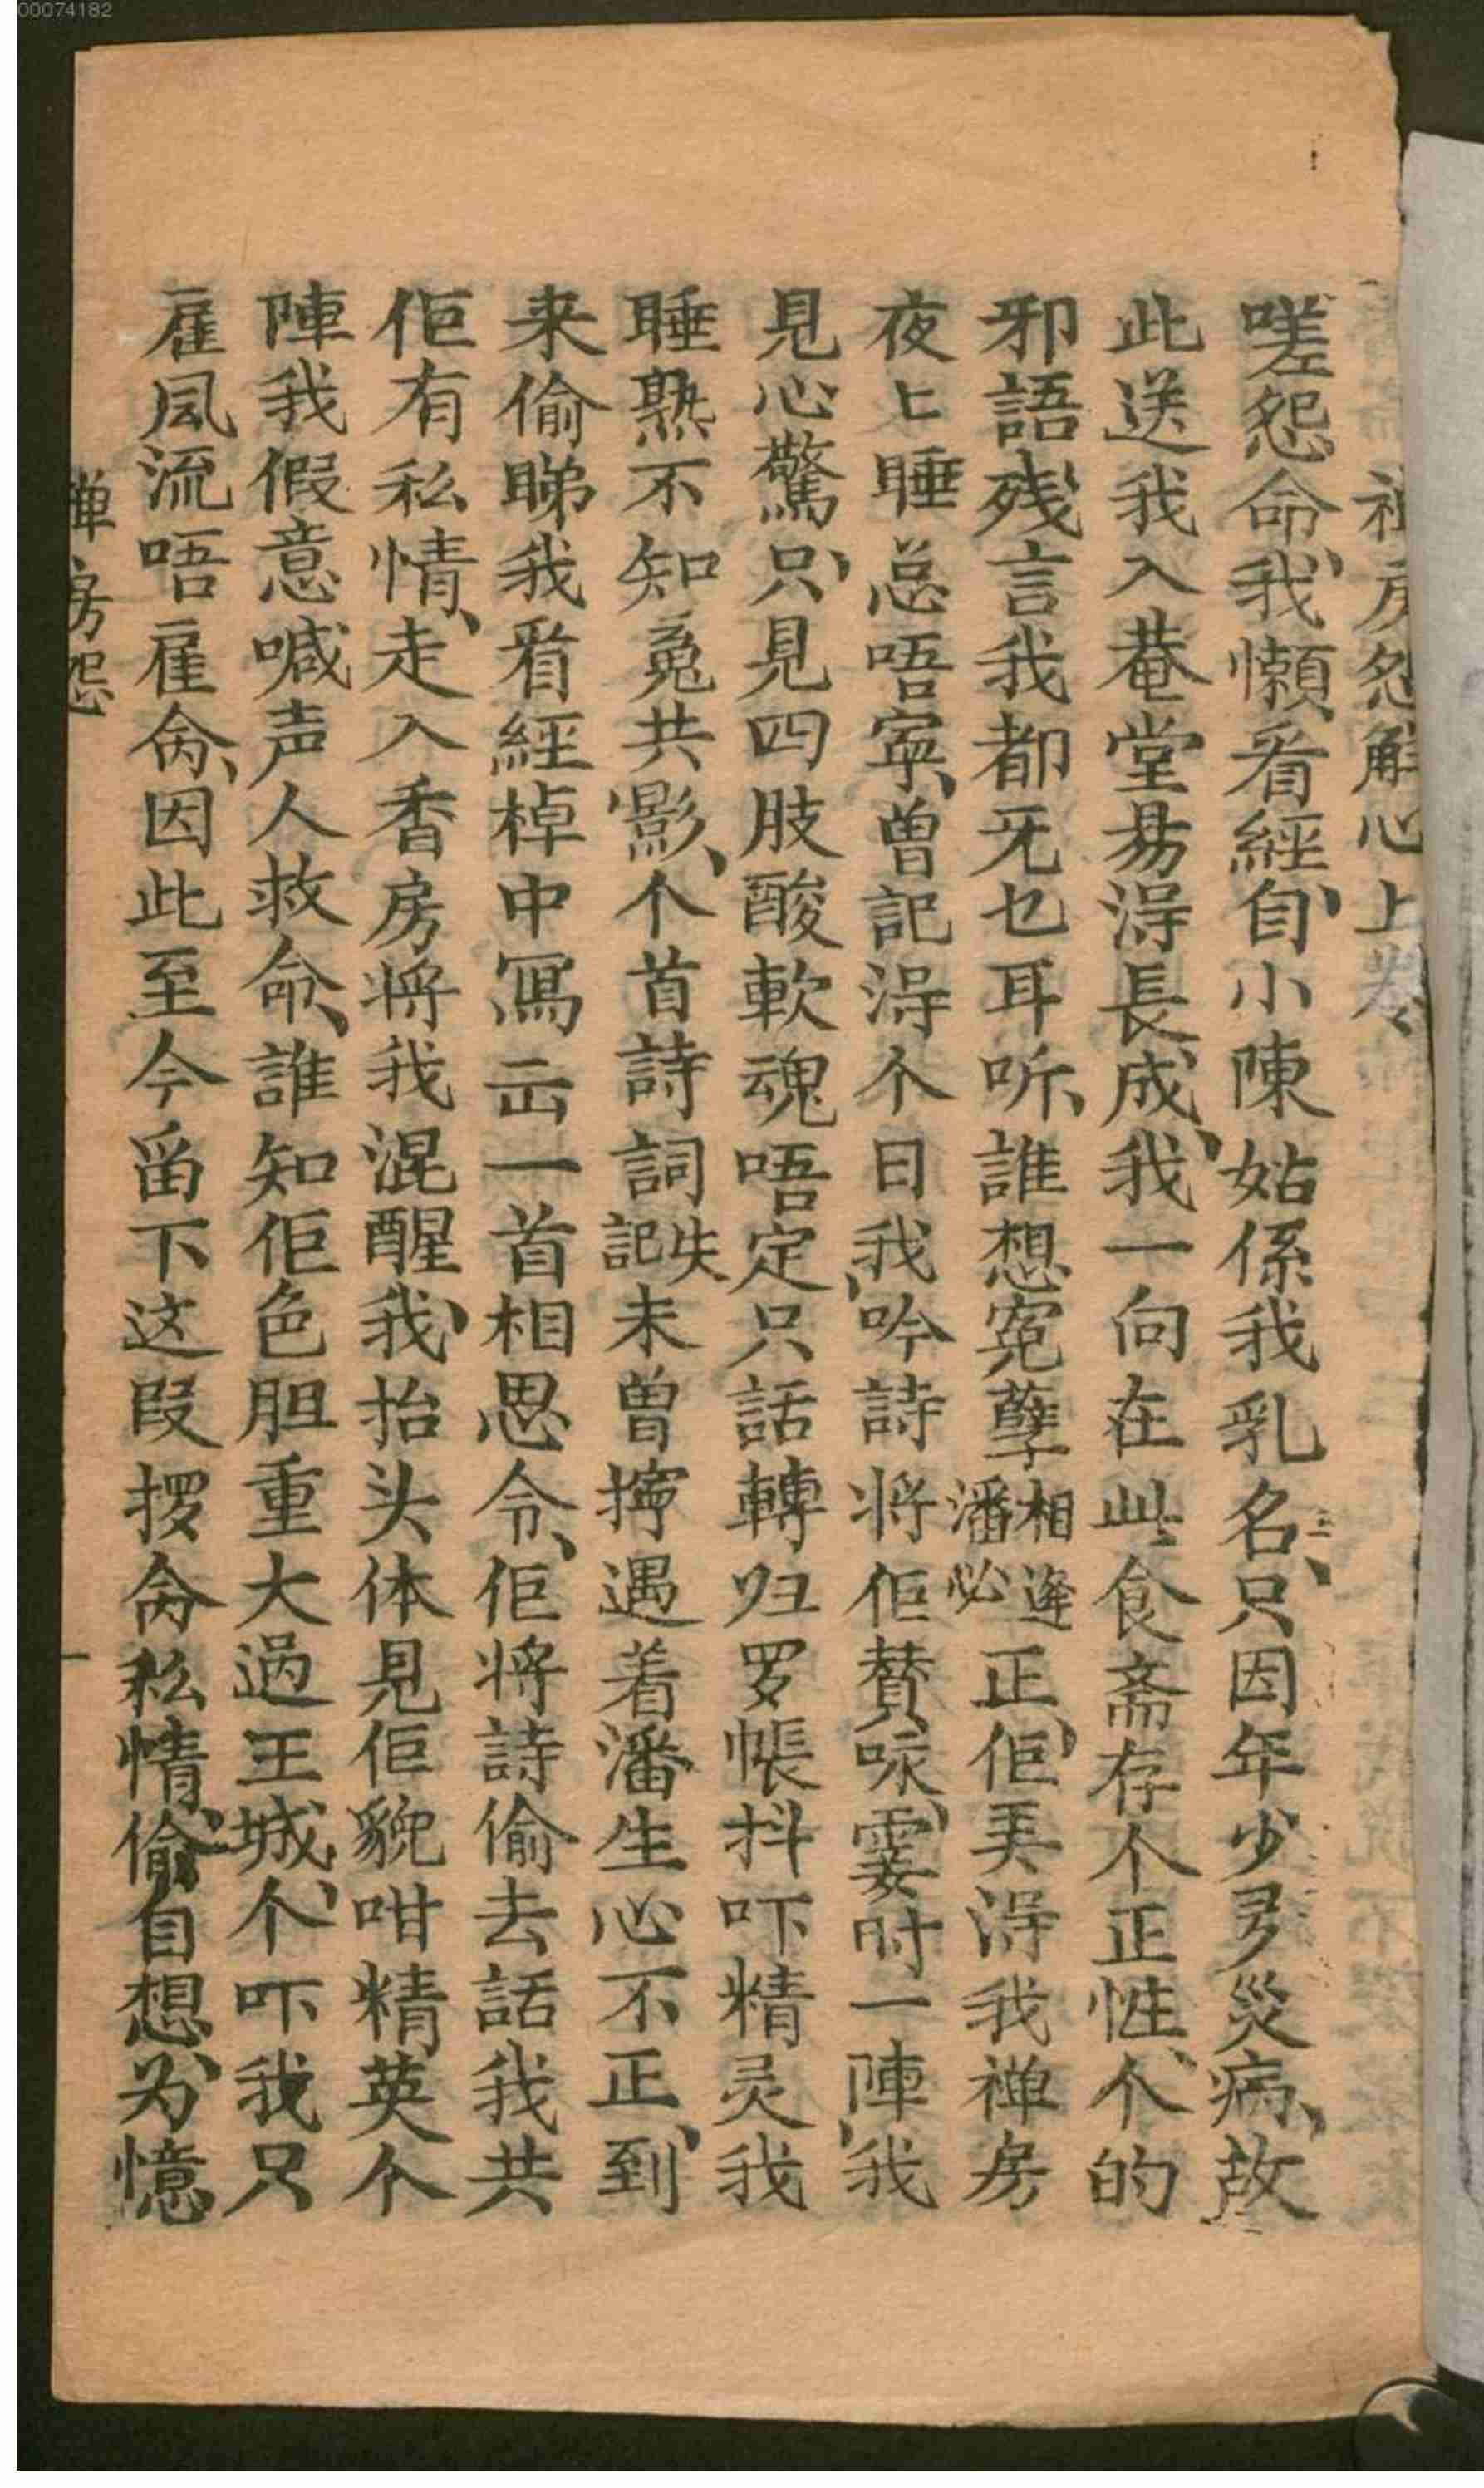 00074182
禅房怨解心上卷
嗟怨命、我懶看經、自小陳姑係我乳名、只因年少多災病、故
此送我入菴堂易淂長成、我一向在此食斋存个正性、个的
邪語残言我都无乜耳听、誰想寃孽相逢潘必正、佢弄淂我禅房
夜上睡总唔寧、曾記淂个日我吟詩将佢賛咏、霎时一陣、我
見心驚、只見四肢酸軟魂唔定、只話轉归罗帳抖吓精灵我
睡熟不知寃共影、个首詩詞失記未曾擰遇着潘生心不正、到
来偷睇我看經棹中寫出一首相思令、佢将詩偷去話我共
佢有私情、走入香房将我混醒、我抬头体見佢貌咁精英个
陣我假意喊声人救命、誰知佢色胆重大過王城、个吓我只
雇风流唔雇命、因此至今畄下这段攞命私情、偷自想、为憶
禅房怨
一